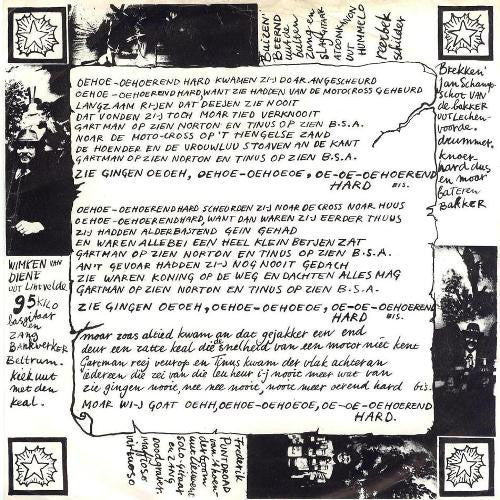 BUIZEN
BEERND
uut de
buizen
zang-en
SLAGGITAAR
AUTOMONTEUR
UUT
HUMMELO
reebok
schilder
OEHOE-OEHOEREND HARD KWAMEN ZIJ DOAR ANGESCHEURD
OEHOE-OEHOEREND HARD, WANT ZIE HADDEN VAN DE MOTOCROSS GEHEURD
LANGZAAM RIJEN DAT DEEJEN ZIE NOOIT
DAT VONDEN ZIJ TOCH MOAR TIED VERKNOOIT
GARTMAN OP ZIEN NORTON EN TINUS OP ZIEN B.S.A.
NOAR DE MOTO-CROSS OP 'T HENGELSE ZAND
DE HOENDER EN DE VROUWLUU STOAVEN AN DE KANT
GARTMAN OP ZIEN NORTON EN TINUS OP ZIEN B.S.A.
ZIE GINGEN OEOEH, OEHOE-OEHOEOE, OE-OE-OEHOEREND
HARD BIS.
OEHOE-OEHOEREND HARD SCHEURDEN ZIJ NOAR DE CROSS NOAR HUUS
OEHOE-OEHOERENDHARD, WANT DAN WAREN ZIJ EERDER THUUS
ZIJ HADDEN ALDERBASTEND GEIN GEHAD
EN WAREN ALLEBEI EEN HEEL KLEIN BETJEN ZAT
GARTMAN OP ZIEN NORTON EN TINUS OP ZIEN B.S.A.
AN'T GEVOAR HADDEN ZIJ NOG NOOIT GEDACH
ZIE WAREN KONING OP DE WEG EN DACHTEN ALLES MAG
GARTMAN OP ZIEN NORTON EN TINUS OP ZIEN B.S.A.
ZIE GINGEN OEOEH, OEHOE-OEHOEOE, OE-OE-OEHOEREND
HARD BIS.
moar zoas altied kwam an dat gejakker een end
deur een zatte keal die de snelheid van een motor niet kent
Gartman reej veurop en Tinus kwam der vlak achteran
Iedereen die zei van die leu heur ij nooit meer wat van
zie gingen nooit, nee nee nooit, nooit meer oerend hard bis.
MOAR WIJ GOAT OEHH, OEHOE-OEHOEOE, OE-OE-OEHOEREND
HARD.
Brekken
Jan Schamp
schot VAN
de bakker
uut Lechen-
voorde.
drummer.
knoer-
hard dus
en moar
bateren
BAKKER
WIMKEN VAN
DIENE
uut Lintvelde
95 KILO
basgitaar
en
ZANG
BANKWERKER
Beltrum.
Kiek uut
met den
keal.
Frederik
PUNTDROAD
van 't heuven-
der boom
uut de leuvert
solo-gitaar
en ZANG
doodgraver
maffioso
virtuoso